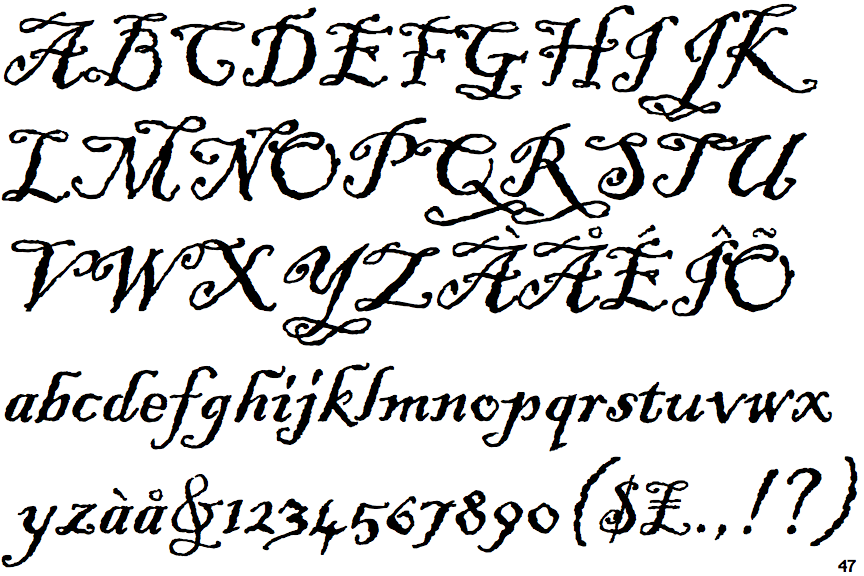 ABCDEFGHIJK
LMNOPQRSTU
VWXYZÀÅÉÎÕ
abcdefghijklmnopqrstuvwx
yzàå&1234567890($£.,!?)
47